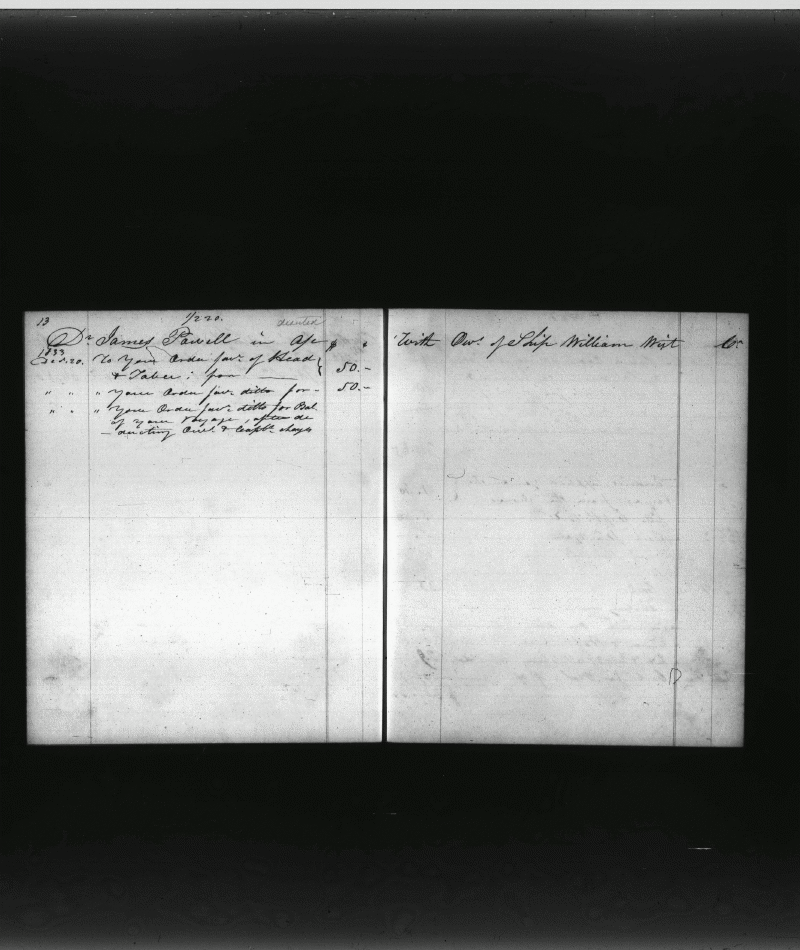 13 1/220. deserted
Dr James Powell in A/c $ With Owrs of Ship William Wirt Cr
1833
Dec. 20. To Your Order favr of Head
& Taber; for 50.-
" " " Your Order favr ditto for - 50.-
" " " Your Order favr ditto for Bal
of your Voyage, after de
-ducting Owrs & Captn charges